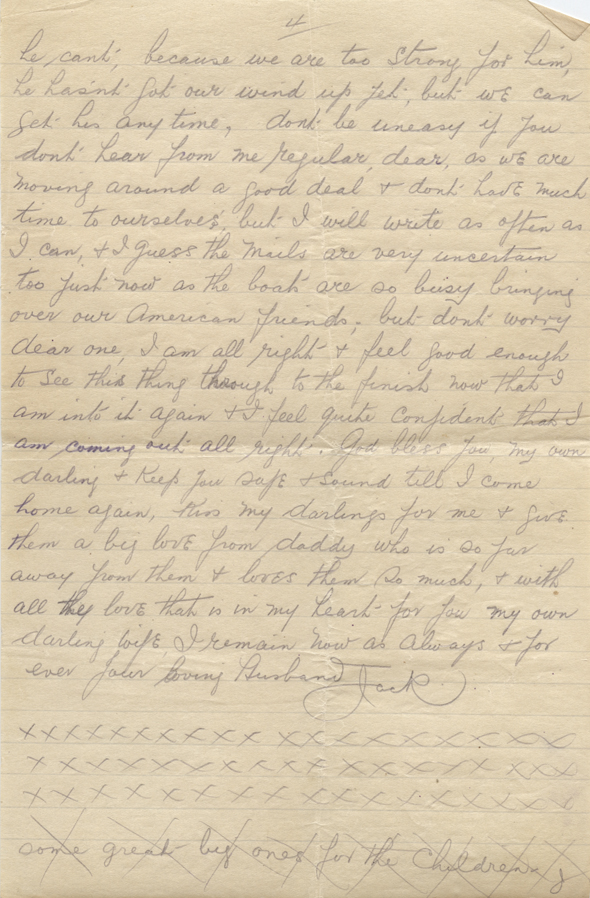 4
he cant, because we are too strong for him,
he hasnt got our wind up yet, but we can
get his any time, dont be uneasy if you
dont hear from me regular, dear, as we are
moving around a good deal + dont have much
time to ourselves, but I will write as often as
I can, + I guess the mails are very uncertain
too just now as the boats are so busy bringing
over our American friends, but dont worry
dear one, I am all right + feel good enough
to see this thing through to the finish now that I
am into it again + I feel quite confident that I
am coming out all right. God bless you my own
darling + keep you safe + sound till I come
home again, kiss my darlings for me + give
them a big love from daddy who is so far
away from them + loves them so much, + with
all the love that is in my heart for you my own
darling wife, I remain now as always + for
ever your loving Husband Jack.
x x x x x x x x x x x x x x x x x x x
x x x x x x x x x x x x x x x x x x
x x x x x x x x x x x x x x x x x x
some great big ones for the Children